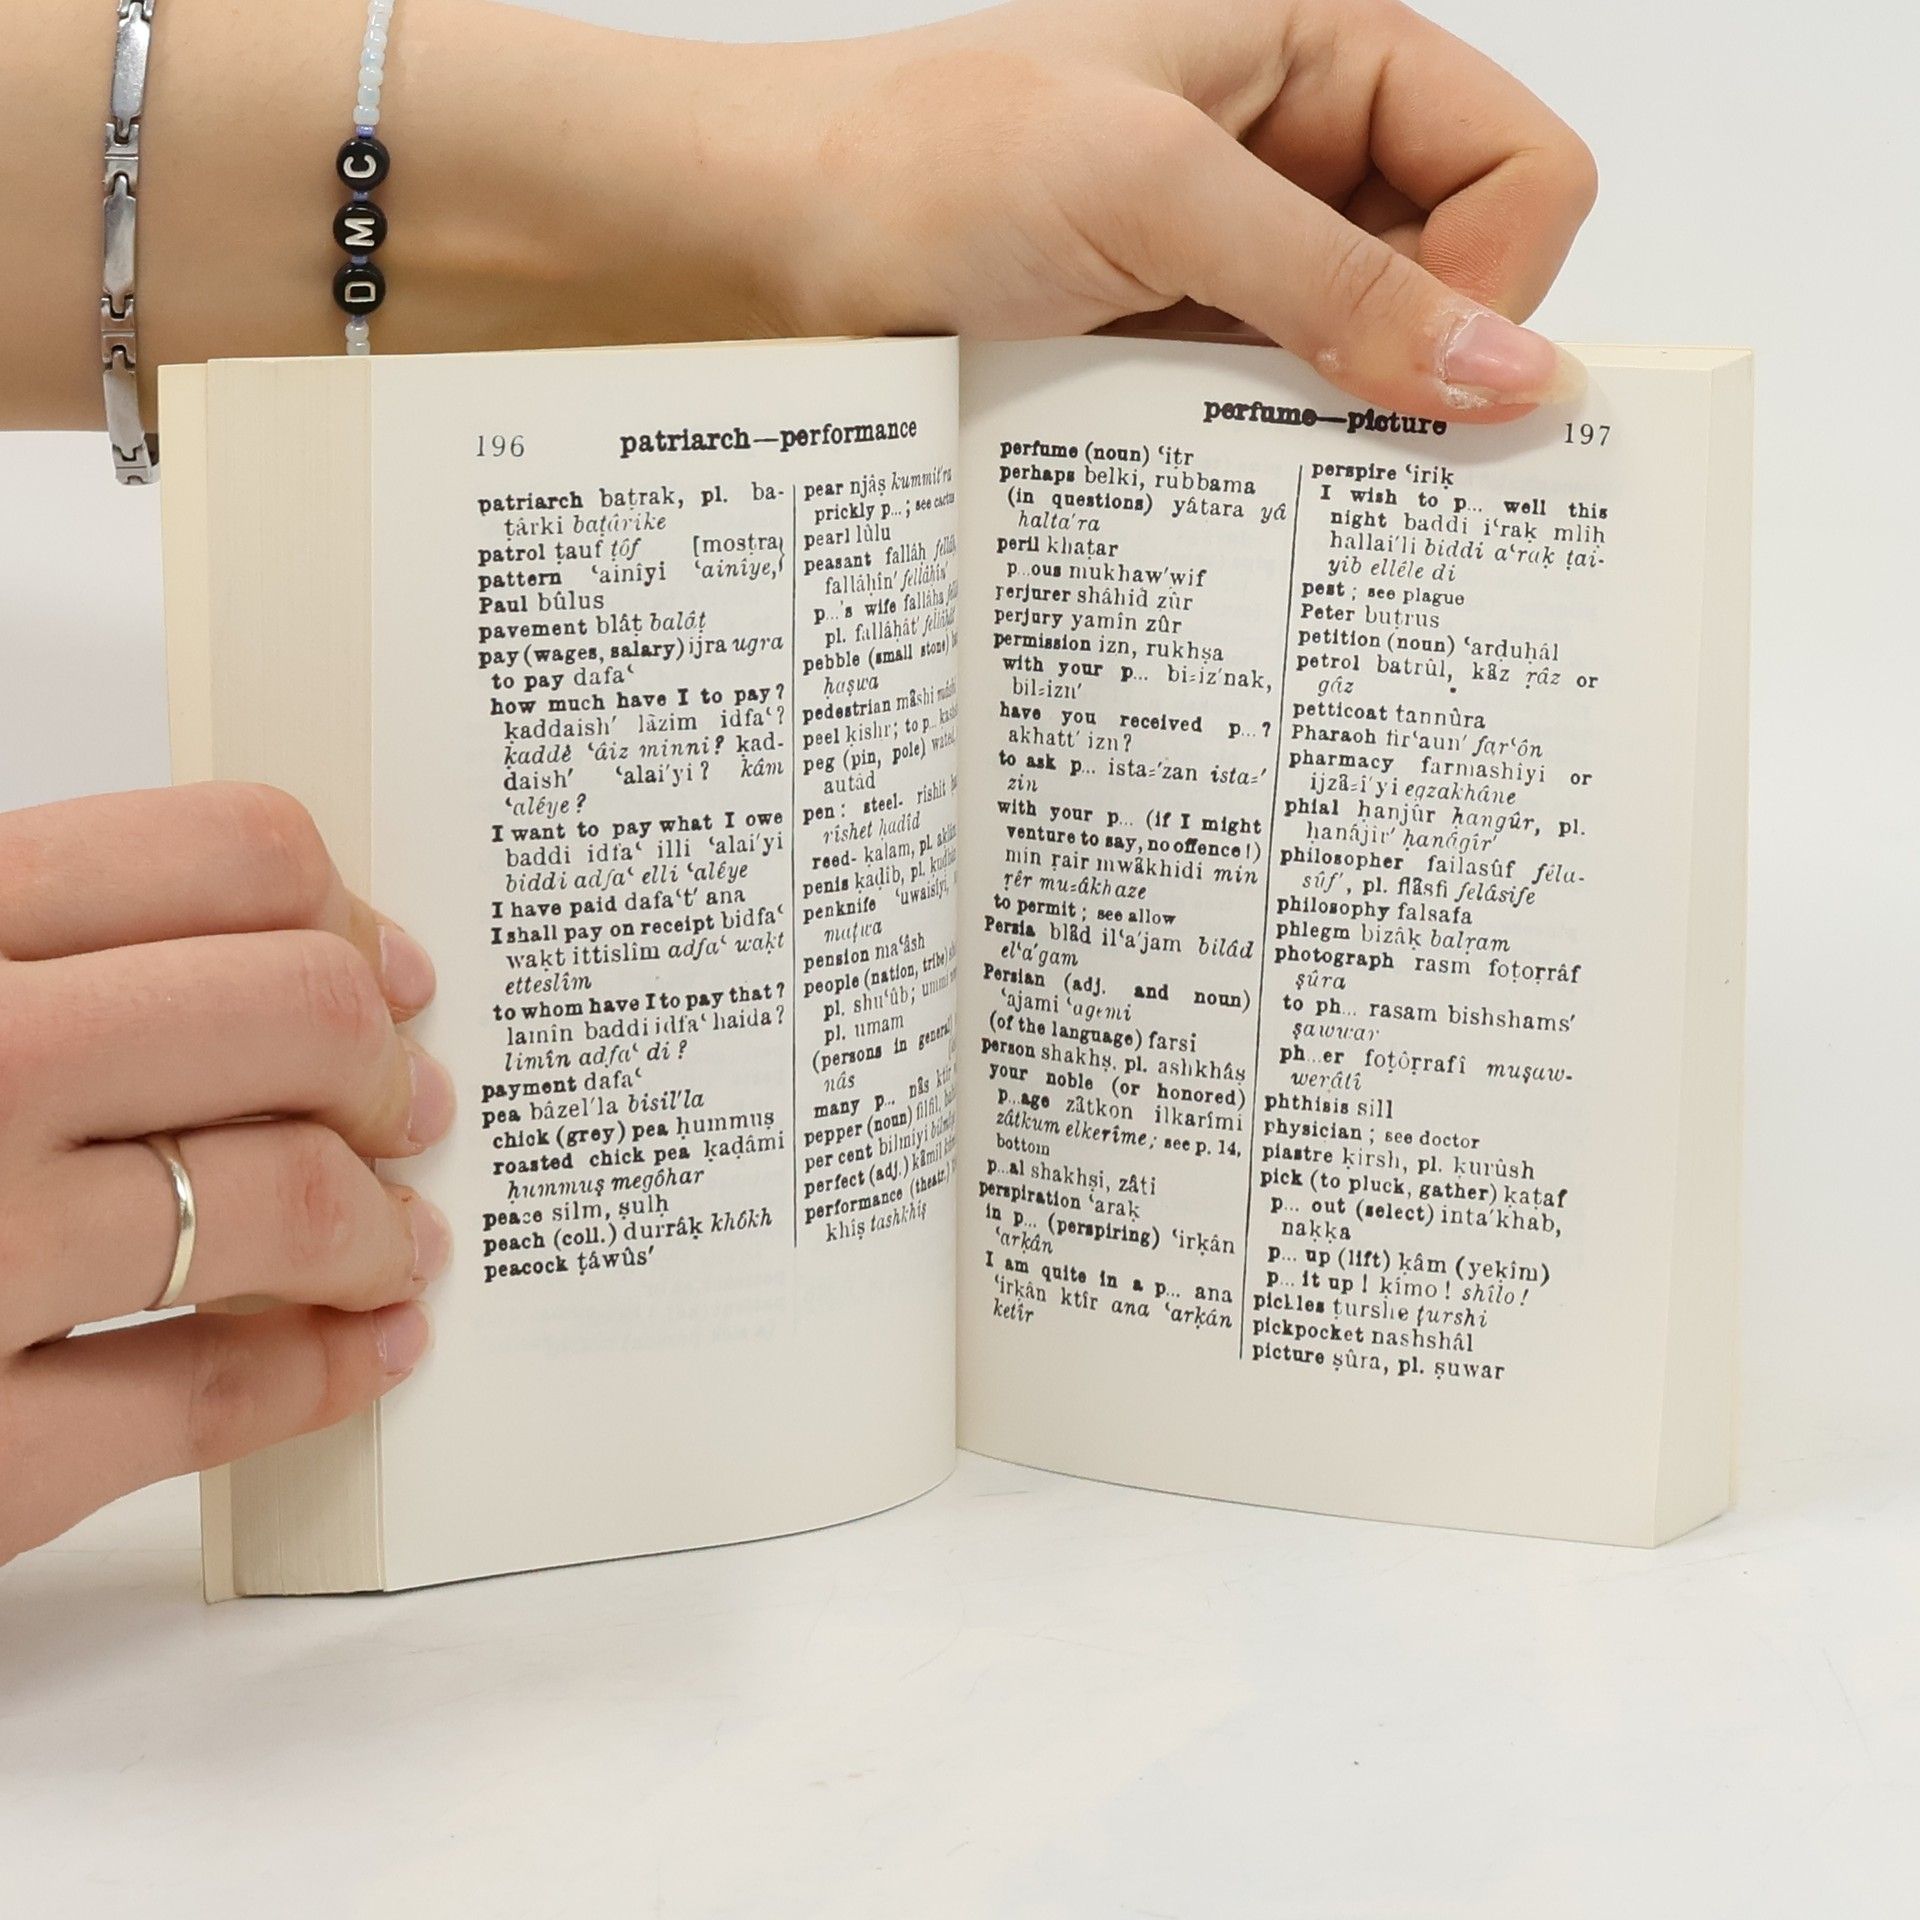 C
M
D
196 patriarch—performance
patriarch baṭrak, pl. ba-
ṭârki baṭârike
patrol ṭauf ṭôf [mosṭra
pattern ‘ainîyi ‘ainîye,
Paul bûlus
pavement blâṭ balâṭ
pay (wages, salary) ijra ugra
to pay dafa‘
how much have I to pay?
kaddaish′ lâzim idfa‘?
ḳaddê ‘âiz minni? ḳad-
daish′ ‘alai′yi? kâm
‘alêye?
I want to pay what I owe
baddi idfa‘ illi ‘alai′yi
biddi adfa‘ elli ‘alêye
I have paid dafa‘t′ ana
I shall pay on receipt bidfa‘
waḳt ittislîm adfa‘ waḳt
etteslîm
to whom have I to pay that?
lamîn baddi idfa‘ haida?
limîn adfa‘ di?
payment dafa‘
pea bâzel′la bisil′la
chick (grey) pea ḥummuṣ
roasted chick pea ḳaḍâmi
ḥummuṣ megôhar
peace silm, ṣulḥ
peach (coll.) durrâḳ khôkh
peacock ṭâwûs′
pear njâṣ kummit′ra
prickly p...; see cactus
pearl lûlu
peasant fallâḥ
fallâḥîn′ fellâḥîn′
p...'s wife fallâḥa
pl. fallâḥât′
pebble (small stone)
ḥaṣwa
pedestrian mâshi
peel ḳishr; to p...
peg (pin, pole)
autâd
pen: steel- rîshit
rîshet ḥadîd
reed- ḳalam, pl.
penis ḳaḍîb, pl.
penknife ‘uwaisîyi,
maṭwa
pension ma‘âsh
people (nation, tribe)
pl. shu‘ûb;
pl. umam
(persons in general)
nâs
many p... nâs ktîr
pepper (noun) filfil,
per cent bilmîyi
perfect (adj.) kâmil
performance (theatr.)
khîṣ tashkhîṣ
perfume—picture 197
perfume (noun) ‘iṭr
perhaps belki, rubbama
(in questions) yâtara yâ
halta′ra
peril khaṭar
p...ous mukhaw′wif
perjurer shâhid zûr
perjury yamîn zûr
permission izn, rukhṣa
with your p... bi=iz′nak,
bil=izn′
have you received p...?
akhatt′ izn?
to ask p... ista=′zan ista=′
zin
with your p... (if I might
venture to say, no offence!)
min ṛair mwâkhidi min
ṛêr mu=âkhaze
to permit; see allow
Persia blâd il‘a′jam bilâd
el‘a′gam
Persian (adj. and noun)
‘ajami ‘agemi
(of the language) farsi
person shakhṣ, pl. ashkhâṣ
your noble (or honored)
p...age zâtkon ilkarîmi
zâtkum elkerîme; see p. 14,
bottom
p...al shakhṣi, zâti
perspiration ‘araḳ
in p... (perspiring) ‘irḳân
‘arḳân
I am quite in a p... ana
‘irḳân ktîr ana ‘arḳân
ketîr
perspire ‘iriḳ
I wish to p... well this
night baddi i‘raḳ mlîḥ
hallai′li biddi a‘raḳ ṭai-
yib ellêle di
pest; see plague
Peter buṭrus
petition (noun) ‘arḍuḥâl
petrol batrûl, kâz ṛâz or
gâz
petticoat tannûra
Pharaoh fir‘aun′ far‘ôn
pharmacy farmashîyi or
ijzâ=î′yi egzakhâne
phial ḥanjûr ḥangûr, pl.
ḥanâjir′ ḥanâgir′
philosopher failasûf fêla-
sûf′, pl. flâsfi felâsife
philosophy falsafa
phlegm bizâḳ balṛam
photograph rasm foṭoṛrâf
ṣûra
to ph... rasam bishshams′
ṣawwar
ph...er foṭôṛrafî muṣaw-
werâtî
phthisis sill
physician; see doctor
piastre ḳirsh, pl. ḳurûsh
pick (to pluck, gather) ḳaṭaf
p... out (select) inta′khab,
naḳḳa
p... up (lift) ḳâm (yeḳîm)
p... it up! ḳîmo! shîlo!
pickles ṭurshe ṭurshi
pickpocket nashshâl
picture ṣûra, pl. ṣuwar